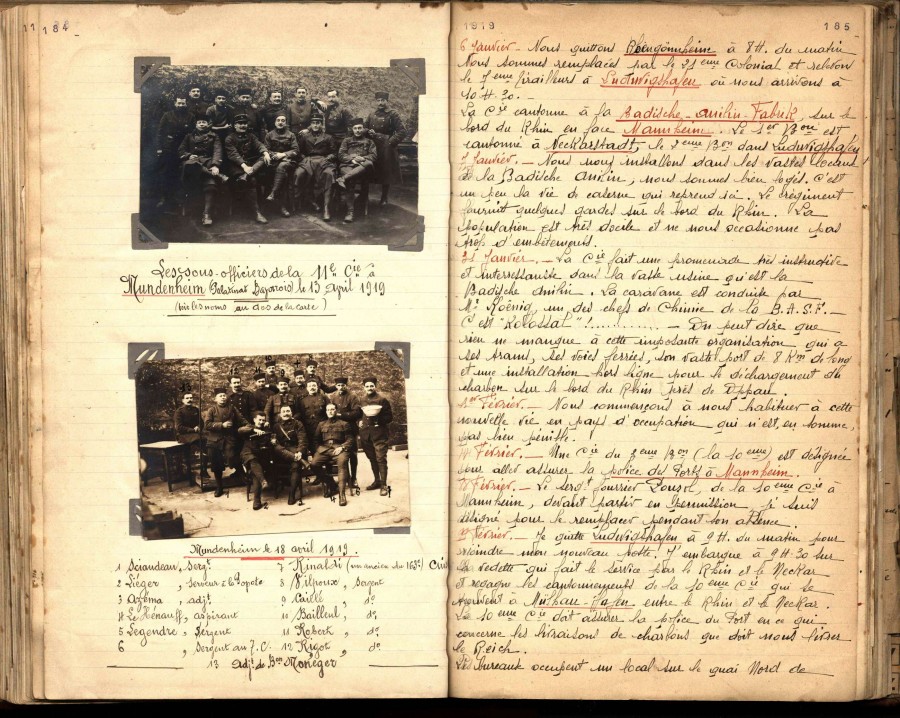 184
Les sous-officiers de la 11e Cie à
Mundenheim (Palatinat Bavarois) le 13 April 1919
(voir les noms au dos de la carte)
Mundenheim le 18 avril 1919.
1 Sciaudeau, Sergt
2 Liéger, Serveur à la Popote
3 Azéma, adjt
4 Le Hénauff, aspirant
5 Legendre, Sergent
6 , Sergent au T.C.
7 Rinaldi (un ancien du 163e) Cuis
8 Vilpoux, Sergent
9 Caillé, do
10 Bailleul, do
11 Robert, do
12 Rigot, do
13 Adjt de Bon Moréger
1919
185
6 Janvier - Nous quittons Rheingönnheim à 8H. du matin
Nous sommes remplacés par le 21eme Colonial et relevon
le 7eme Tirailleurs à Ludwigshafen où nous arrivons à
10 H 30. -
La Cie cantonne à la Badische-Anilin-Fabrik, sur le
bord du Rhin en face Mannheim. Le 1er Bon est
cantonné à Neckarstadt, le 2eme Bon dans Ludwigshafen
7 Janvier. - Nous nous installons dans les vastes locaux
de la Badische Anilin, nous sommes bien logés. C'est
un peu la vie de caserne qui reprend ici. Le régiment
fournit quelques gardes sur le bord du Rhin. La
population est très docile et ne nous occasionne pas
trop d'embêtements.
21 Janvier. - La Cie fait une promenade très instructive
et intéressante dans la vaste usine qu'est la
Badische Anilin. La caravane est conduite par
Mr Koënig, un des chefs de Chimie de la B.A.S.F. -
C'est "Kolossal"!........... - On peut dire que
rien ne manque à cette imposante organisation qui a
ses trams, ses voies ferrées, son vaste port de 8 Km de long
et une installation hors ligne pour le déchargement du
charbon sur le bord du Rhin près de Oppau.
Février. - Nous commençons à nous habituer à cette
nouvelle vie en pays d'occupation qui n'est, en somme,
pas bien pénible.
Février. - Une Cie du 3eme Bon (la 10eme) est désignée
pour aller assurer la police des Ports à Mannheim.
Février. - Le Sergt fourrier de la 10eme Cie à
Mannheim, devant partir en permission je suis
désigné pour le remplacer pendant son absence.
Février. - Je quitte Ludwigshafen à 9 H. du matin pour
rejoindre mon nouveau poste. J'embarque à 9 H 30 sur
la vedette qui fait le service par le Rhin et le Neckar
et regagne les cantonnements de la 10eme Cie qui se
trouvent à Mülhau-Hafen entre le Rhin et le Neckar.
La 10eme Cie doit assurer la police du Port en ce qui
concerne les livraisons de charbons que doit nous livrer
le Reich.
Les bureaux occupent un local sur le quai Nord de